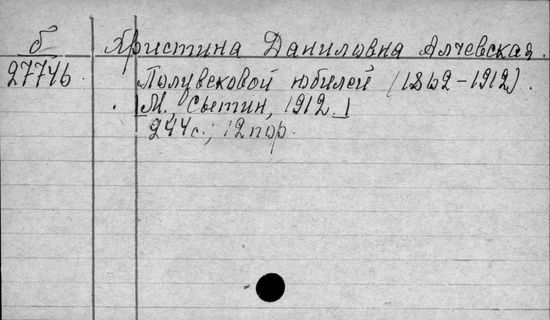 б Христина Даниловна Алчевская.
27746 Полувековой юбилей (1862-1912).
М, Сытин, 1912.
244с.; 12пор.